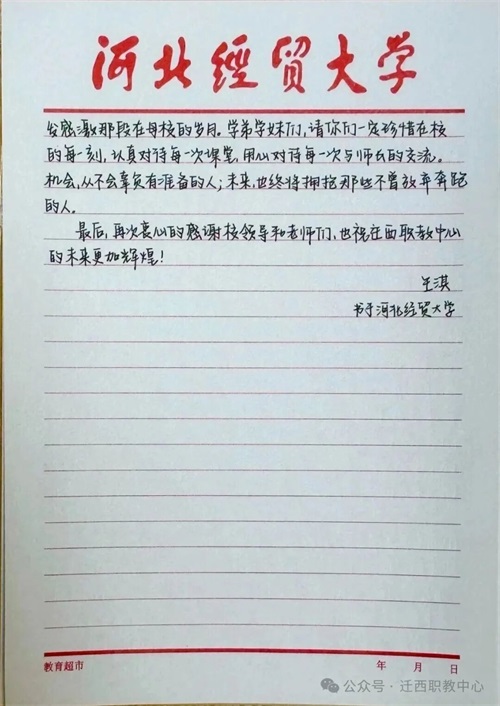 河北經貿大学
发感激那段在母校的岁月。学弟学妹们，请你们一定珍惜在校
的每一刻，认真对待每一次课堂，用心对待每一次与师长的交流。
机会，从不会辜负有准备的人；未来，也终将拥抱那些不曾放弃奔跑
的人。
最后，再次衷心的感谢校领导和老师们，也祝迁西职教中心
的未来更加辉煌！
王淇
书于河北经贸大学
教育超市 年 月 日
公众号·迁西职教中心